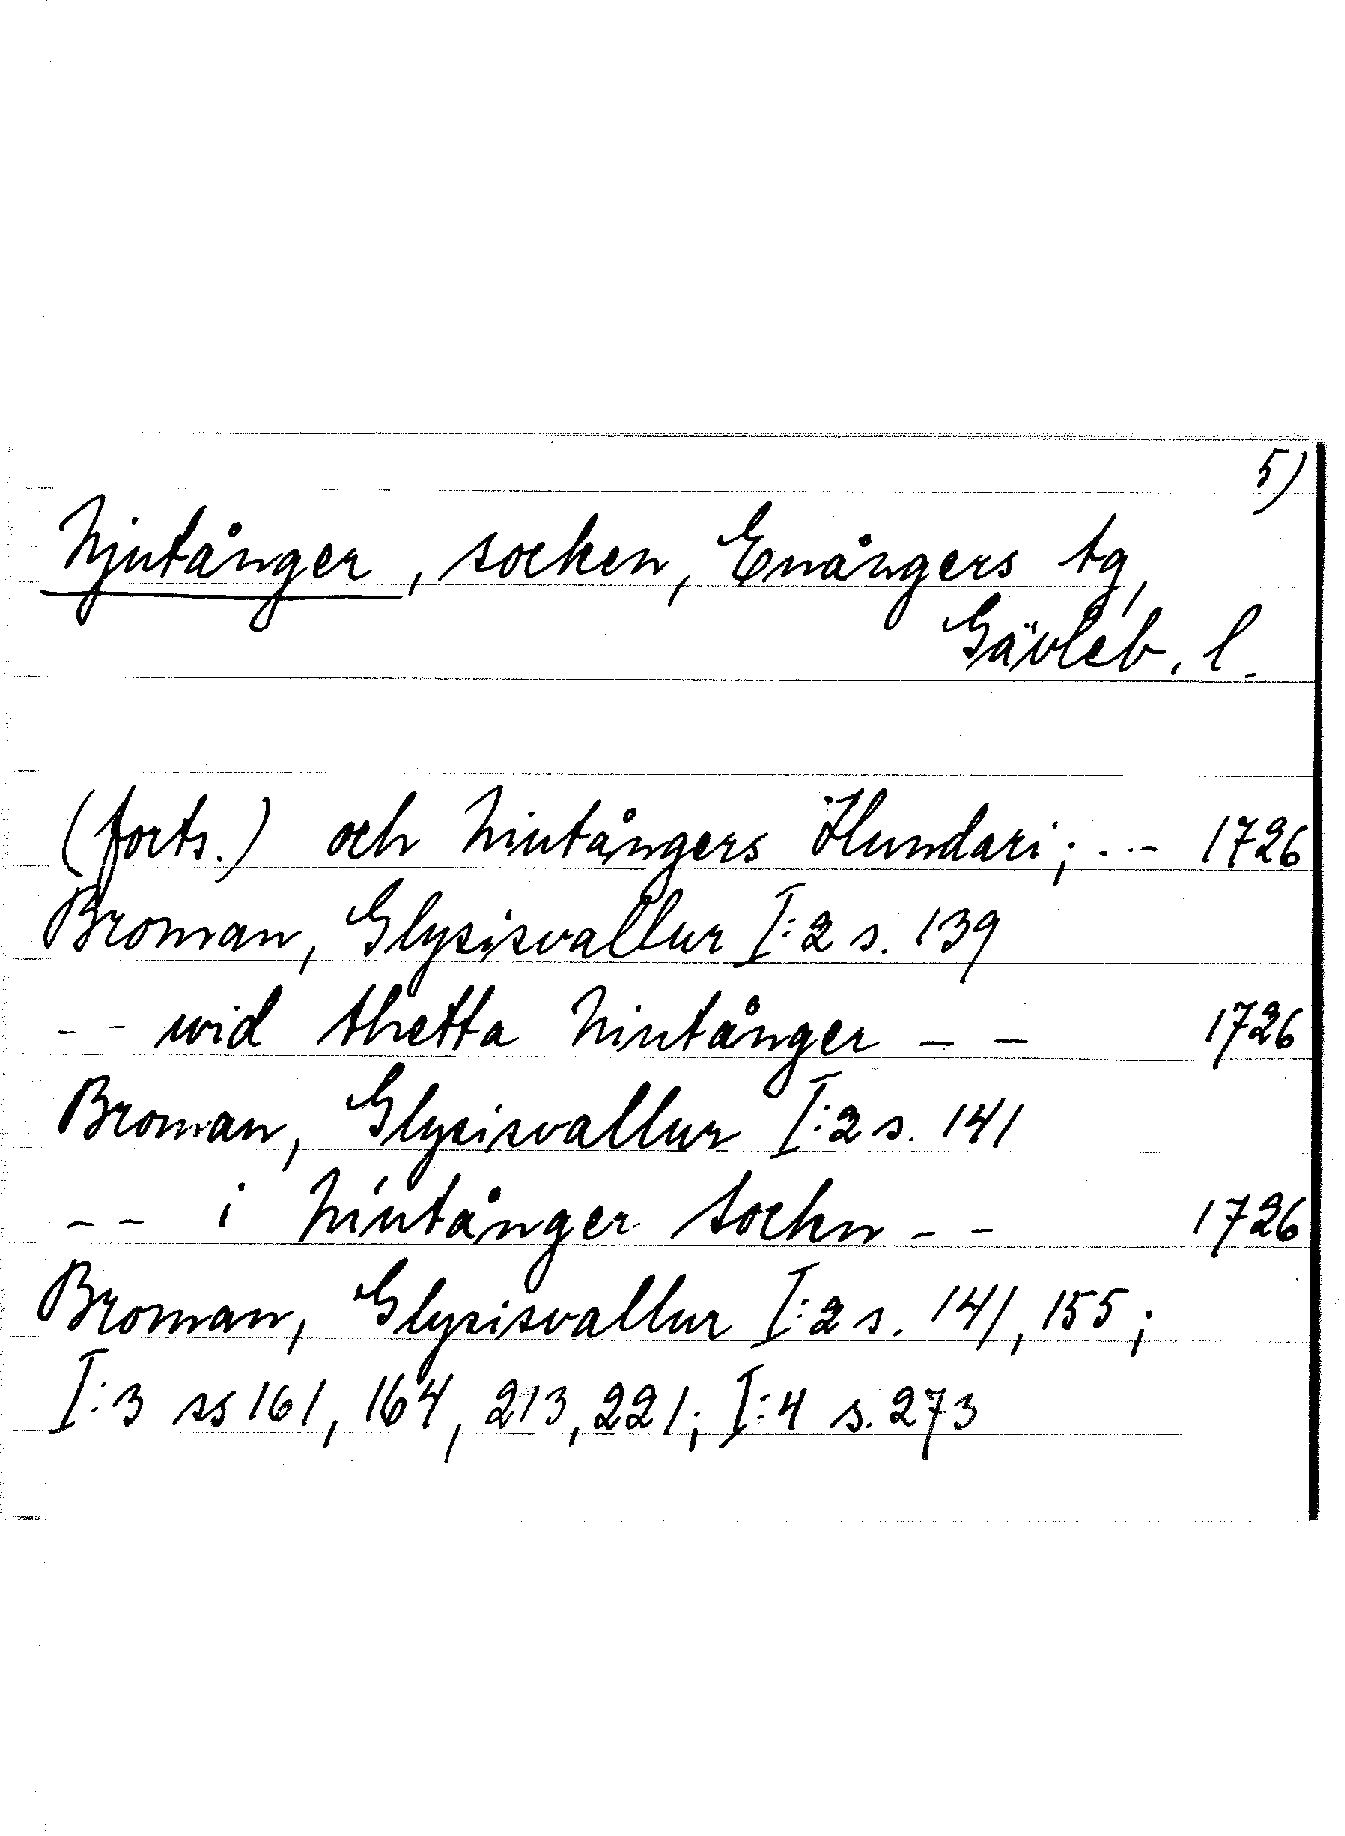 5)
Njutånger, socken, Enångers tg,
Gävleb. l.
(forts.) och Niutångers Hundari; - - 1726
Broman, Glysisvallur I:2 s. 139
- - wid thetta Niutånger - - 1726
Broman, Glysisvallur I:2 s. 141
- - i Niutånger Sockn - - 1726
Broman, Glysisvallur I:2 s. 141, 155;
I:3 ss 161, 164, 213, 221; I:4 s. 273